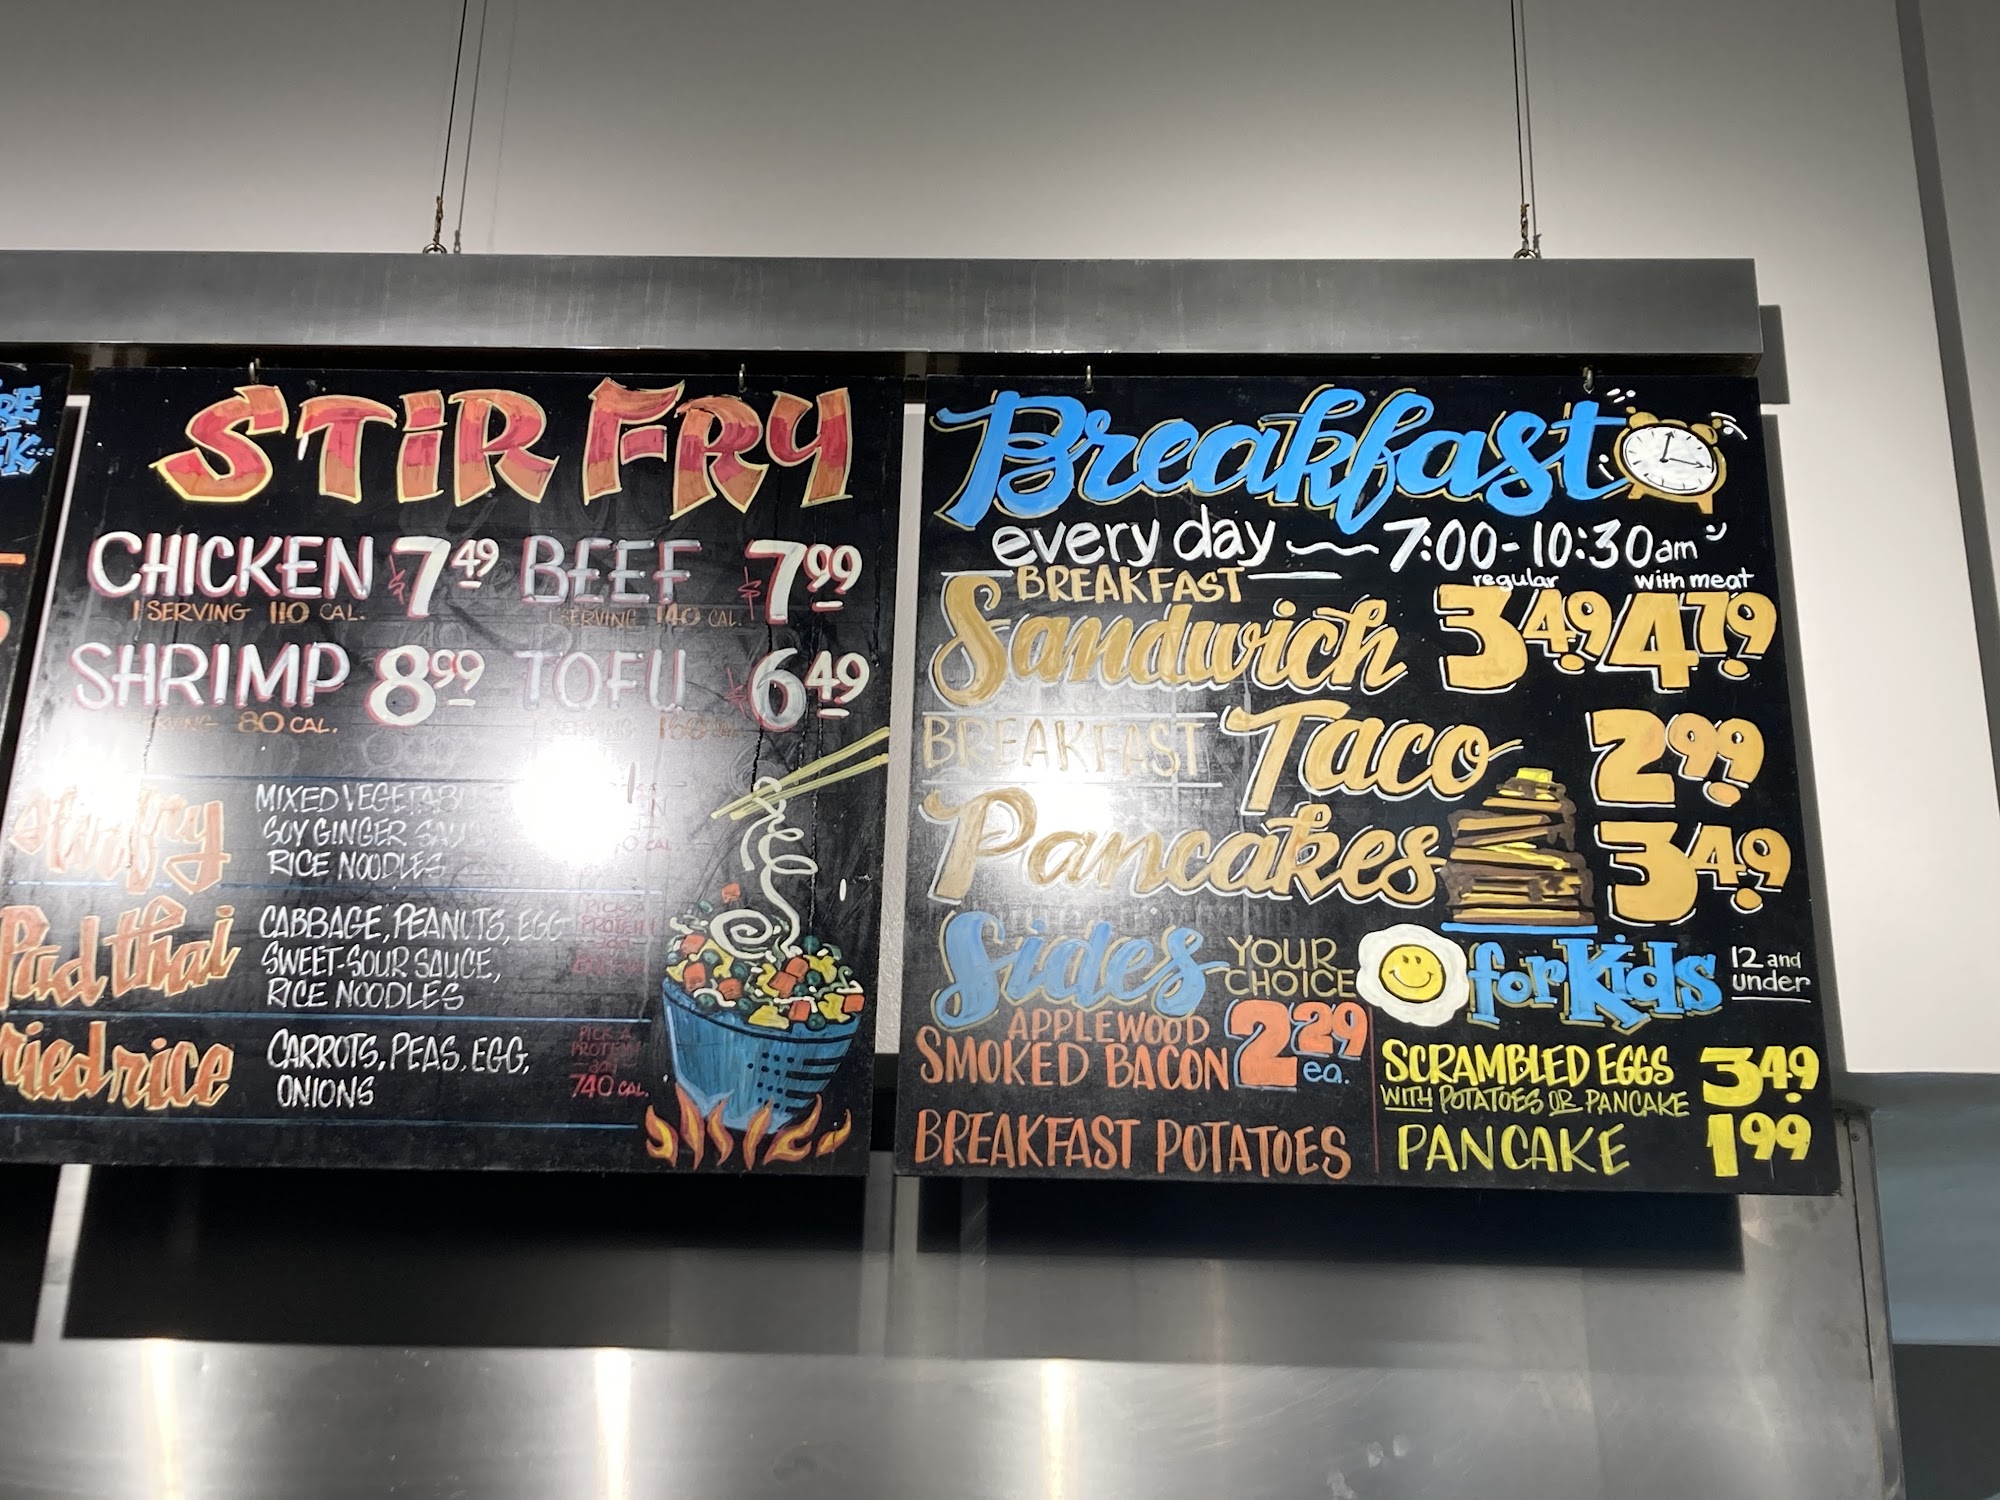 RE
K...
STIR FRY
CHICKEN $7.49 BEEF $7.99
1 SERVING 110 CAL. 1 SERVING 140 CAL.
SHRIMP 8.99 TOFU $6.49
SERVING 80 CAL. 1 SERVING CAL.
stir fry MIXED VEGETABL
SOY GINGER SAUC
RICE NOODLES
Pad thai CABBAGE, PEANUTS, EGG
SWEET-SOUR SAUCE,
RICE NOODLES
PICK A
PROTEIN
ried rice CARROTS, PEAS, EGG,
ONIONS
PICK A
PROTEIN
740 CAL.
Breakfast
every day 7:00-10:30am
BREAKFAST regular with meat
Sandwich 3.49 4.79
BREAKFAST Taco 2.99
Pancakes 3.49
Sides YOUR CHOICE
APPLEWOOD
SMOKED BACON 2.29 ea.
BREAKFAST POTATOES
for Kids 12 and under
SCRAMBLED EGGS 3.49
WITH POTATOES OR PANCAKE
PANCAKE 1.99